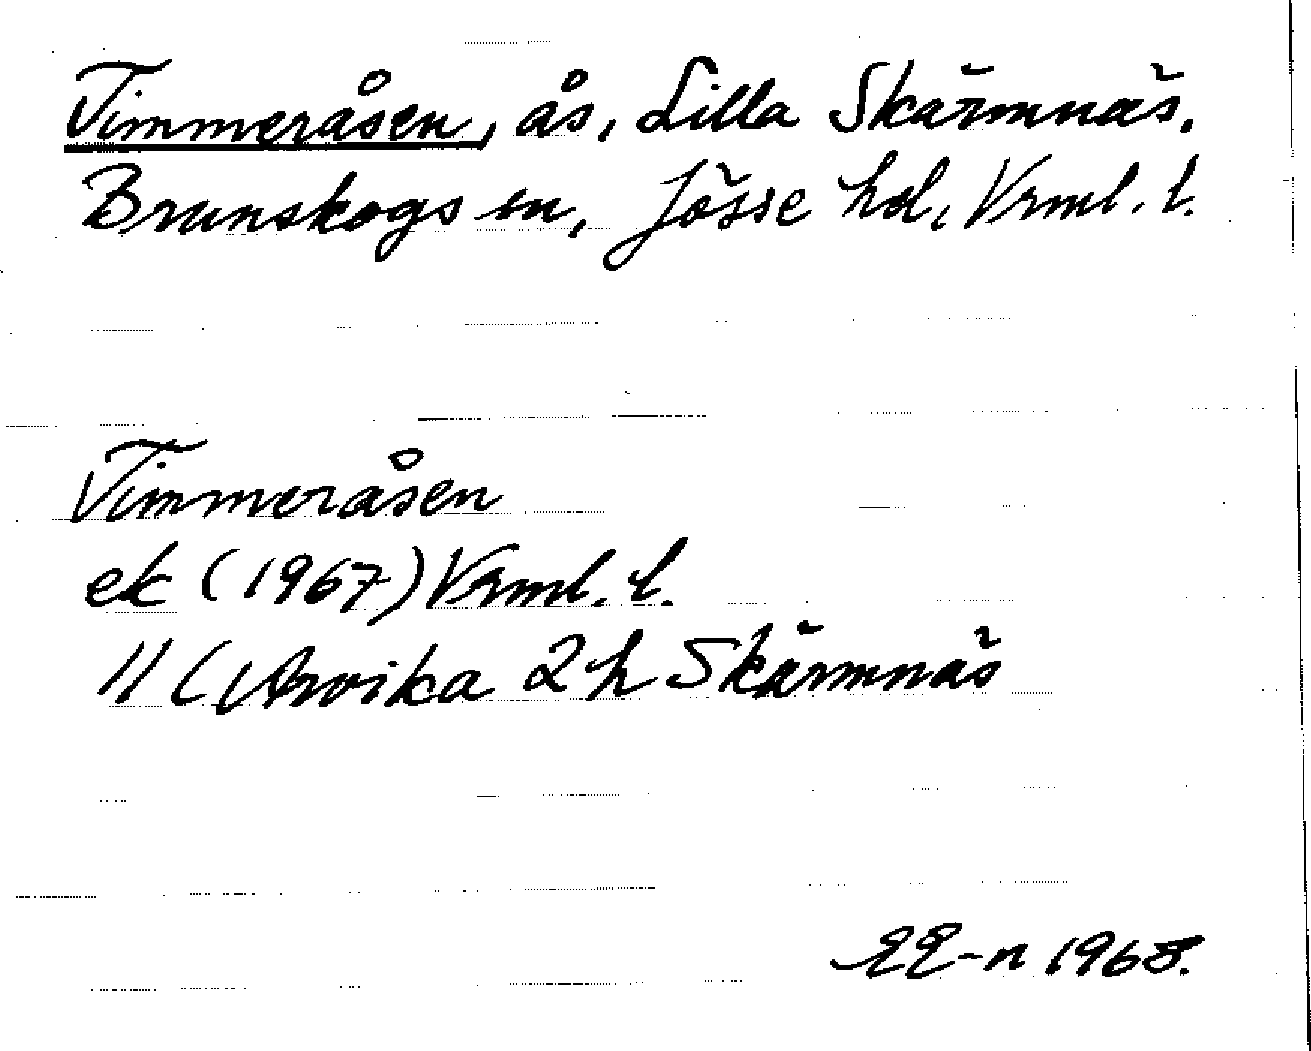 Timmeråsen, ås, Lilla Skärmnäs,
Brunskogs sn, Jösse hd, Vrml. l.
Timmeråsen
ek (1967) Vrml. l.
11 C Arvika 2 h Skärmnäs
EE-n 1968.